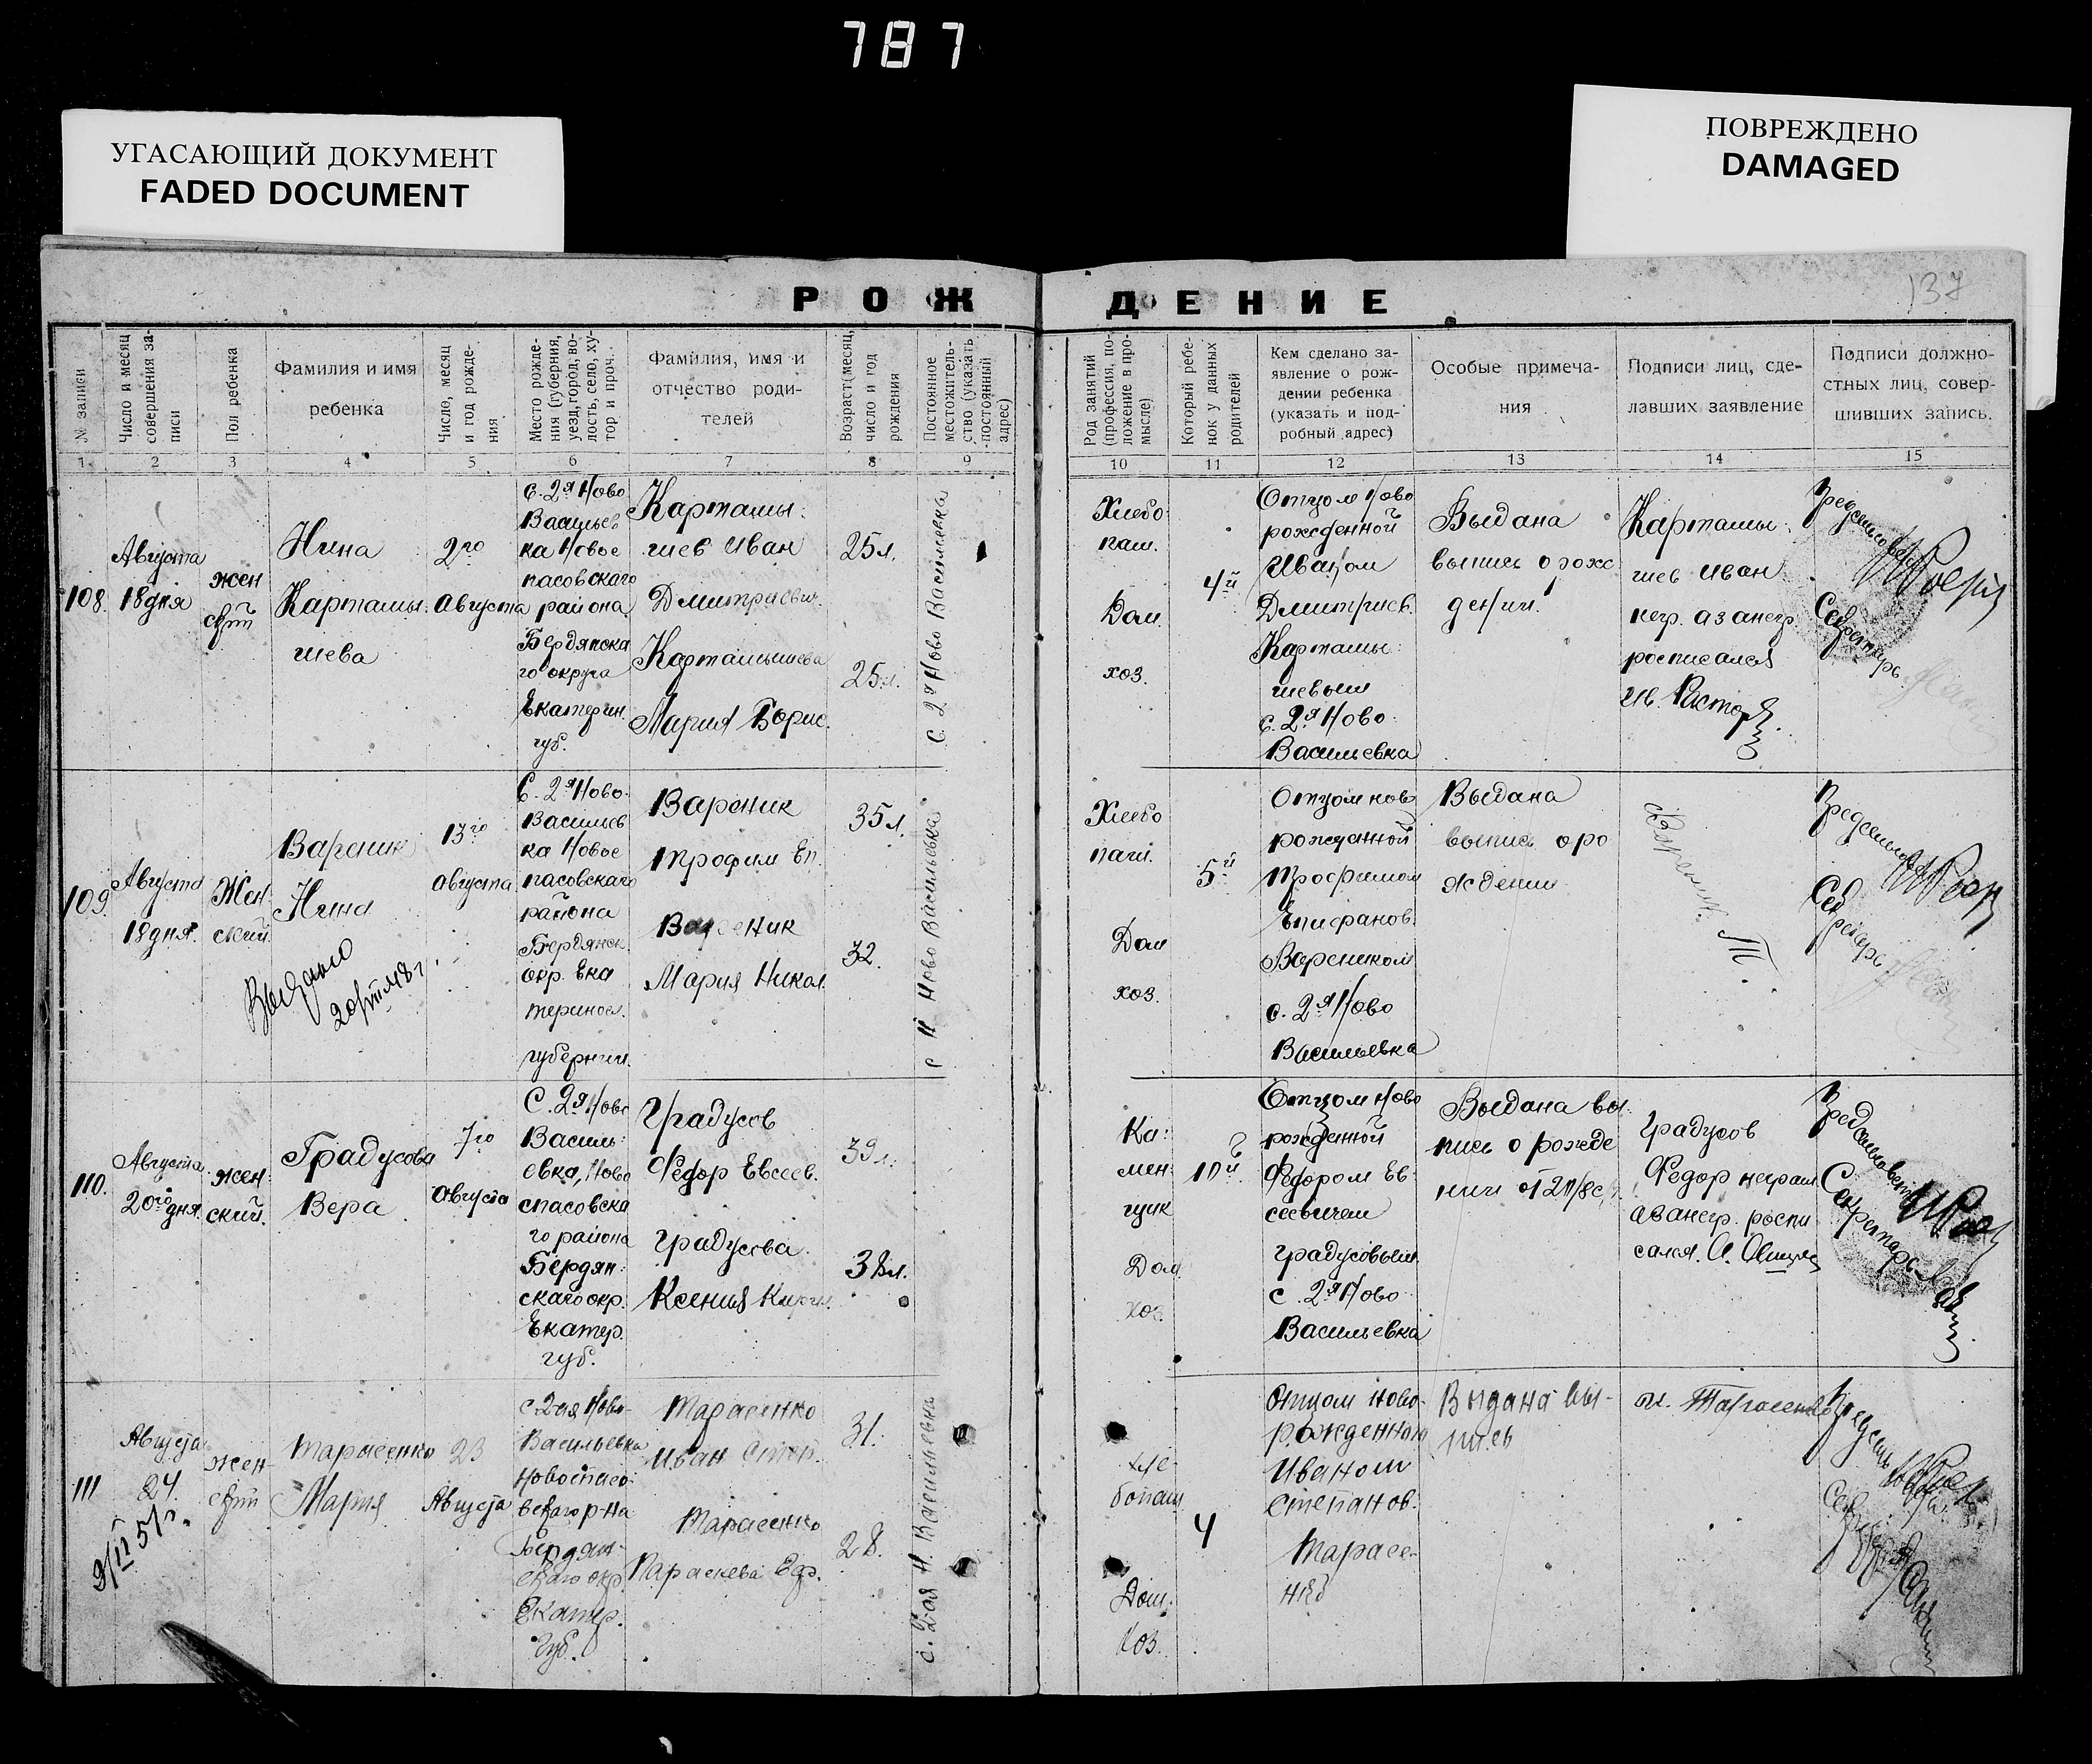 787
УГАСАЮЩИЙ ДОКУМЕНТ
FADED DOCUMENT
ПОВРЕЖДЕНО
DAMAGED
РОЖДЕНИЕ
137
№ записи
Число и месяц совершения записи
Пол ребенка
Фамилия и имя
ребенка
Число, месяц
и год рожде-
ния
Место рожде-
ния (губерния,
уезд, город, во-
лость, село, ху-
тор и проч.
Фамилия, имя и
отчество роди-
телей
Возраст (месяц,
число и год
рождения
Постоянное
местожитель-
ство (указать
постоянный
адрес)
Род занятий
(профессия, по-
ложение в про-
мысле)
Который ребе-
нок у данных
родителей
Кем сделано за-
явление о рож-
дении ребенка
(указать и под-
робный адрес)
Особые примеча-
ния
Подписи лиц, сде-
лавших заявление
Подписи должно-
стных лиц, совер-
шивших запись.
1 2 3 4 5 6 7 8 9 10 11 12 13 14 15
108.
Августа
18 дня
жен
ский
Нина
Карташы-
шева
2го
Августа
с. 2я Ново
Васильев
ка Новос
пасовского
района
Бердянска
го округа
Екатерин.
губ.
Карташы-
шев Иван
Дмитриевич.
Карташышева
Мария Борис.
25 л.
25 л.
с. 2я Ново Васильевка
Хлебо-
паш.
Дом.
хоз.
4й
Отцом ново
рожденной
Иваном
Дмитриев.
Карташы-
шевым
с. 2я Ново-
Васильевка
Выдана
выпись о рож
дении.
Карташы-
шев Иван
негр. а за негр.
росписался
Секретарь
109.
Августа
18 дня.
Жен-
ский.
Вареник
Нина
Выдано
13го
Августа
С. 2я Ново-
Васильев
ка Новос
пасовского
района
Бердянск.
окр. Ека
теринос.
губернии.
Вареник
Трофим Еп.
Вареник
Мария Никол.
35 л.
32.
с. II Ново Васильевка
Хлебо
паш.
Дом
хоз.
5й
Отцом нов
рожденной
Трофимом
Епифанов.
Вареником
с. 2я Ново
Васильевка
Выдана
выпись о ро
ждении
Вареник. Т.
Секретарь
110.
Августа
20го дня.
жен-
ский.
Градусова
Вера
7го
Августа
С. 2я Ново
Василь-
евка, Ново
спасовска
го района
Бердян-
ского окр.
Екатер.
губ.
Градусов
Федор Евсеев.
Градусова
Ксения
39 л.
38 л.
Ка-
мен-
щик
Дом.
хоз.
10й
Отцом ново
рожденной
Федором Ев-
сеевичем
Градусовым
с. 2я Ново
Васильевка
Выдана вы-
пись о рожде
нии от 20/8
Градусов
Федор неграм.
а за негр. роспи
сался.
Предсельсовета
Секретарь
111
Августа
24.
жен-
ский
Тарасенко
Мария
23
Августа
с. 2ая Ново-
Васильевка
Новоспасо-
вского р-на
Бердян-
ского окр.
Екатер.
губ.
Тарасенко
Иван Степ.
Тарасенко
Параскева Еф.
31.
28.
с. 2ая Н. Васильевка
хле-
бопаш
Дом.
хоз.
4
Отцом ново-
рожденной
Иваном
Степанов.
Тарасе-
нко
Выдана вы-
пись
и. Тарасенко
9/II 51 г.